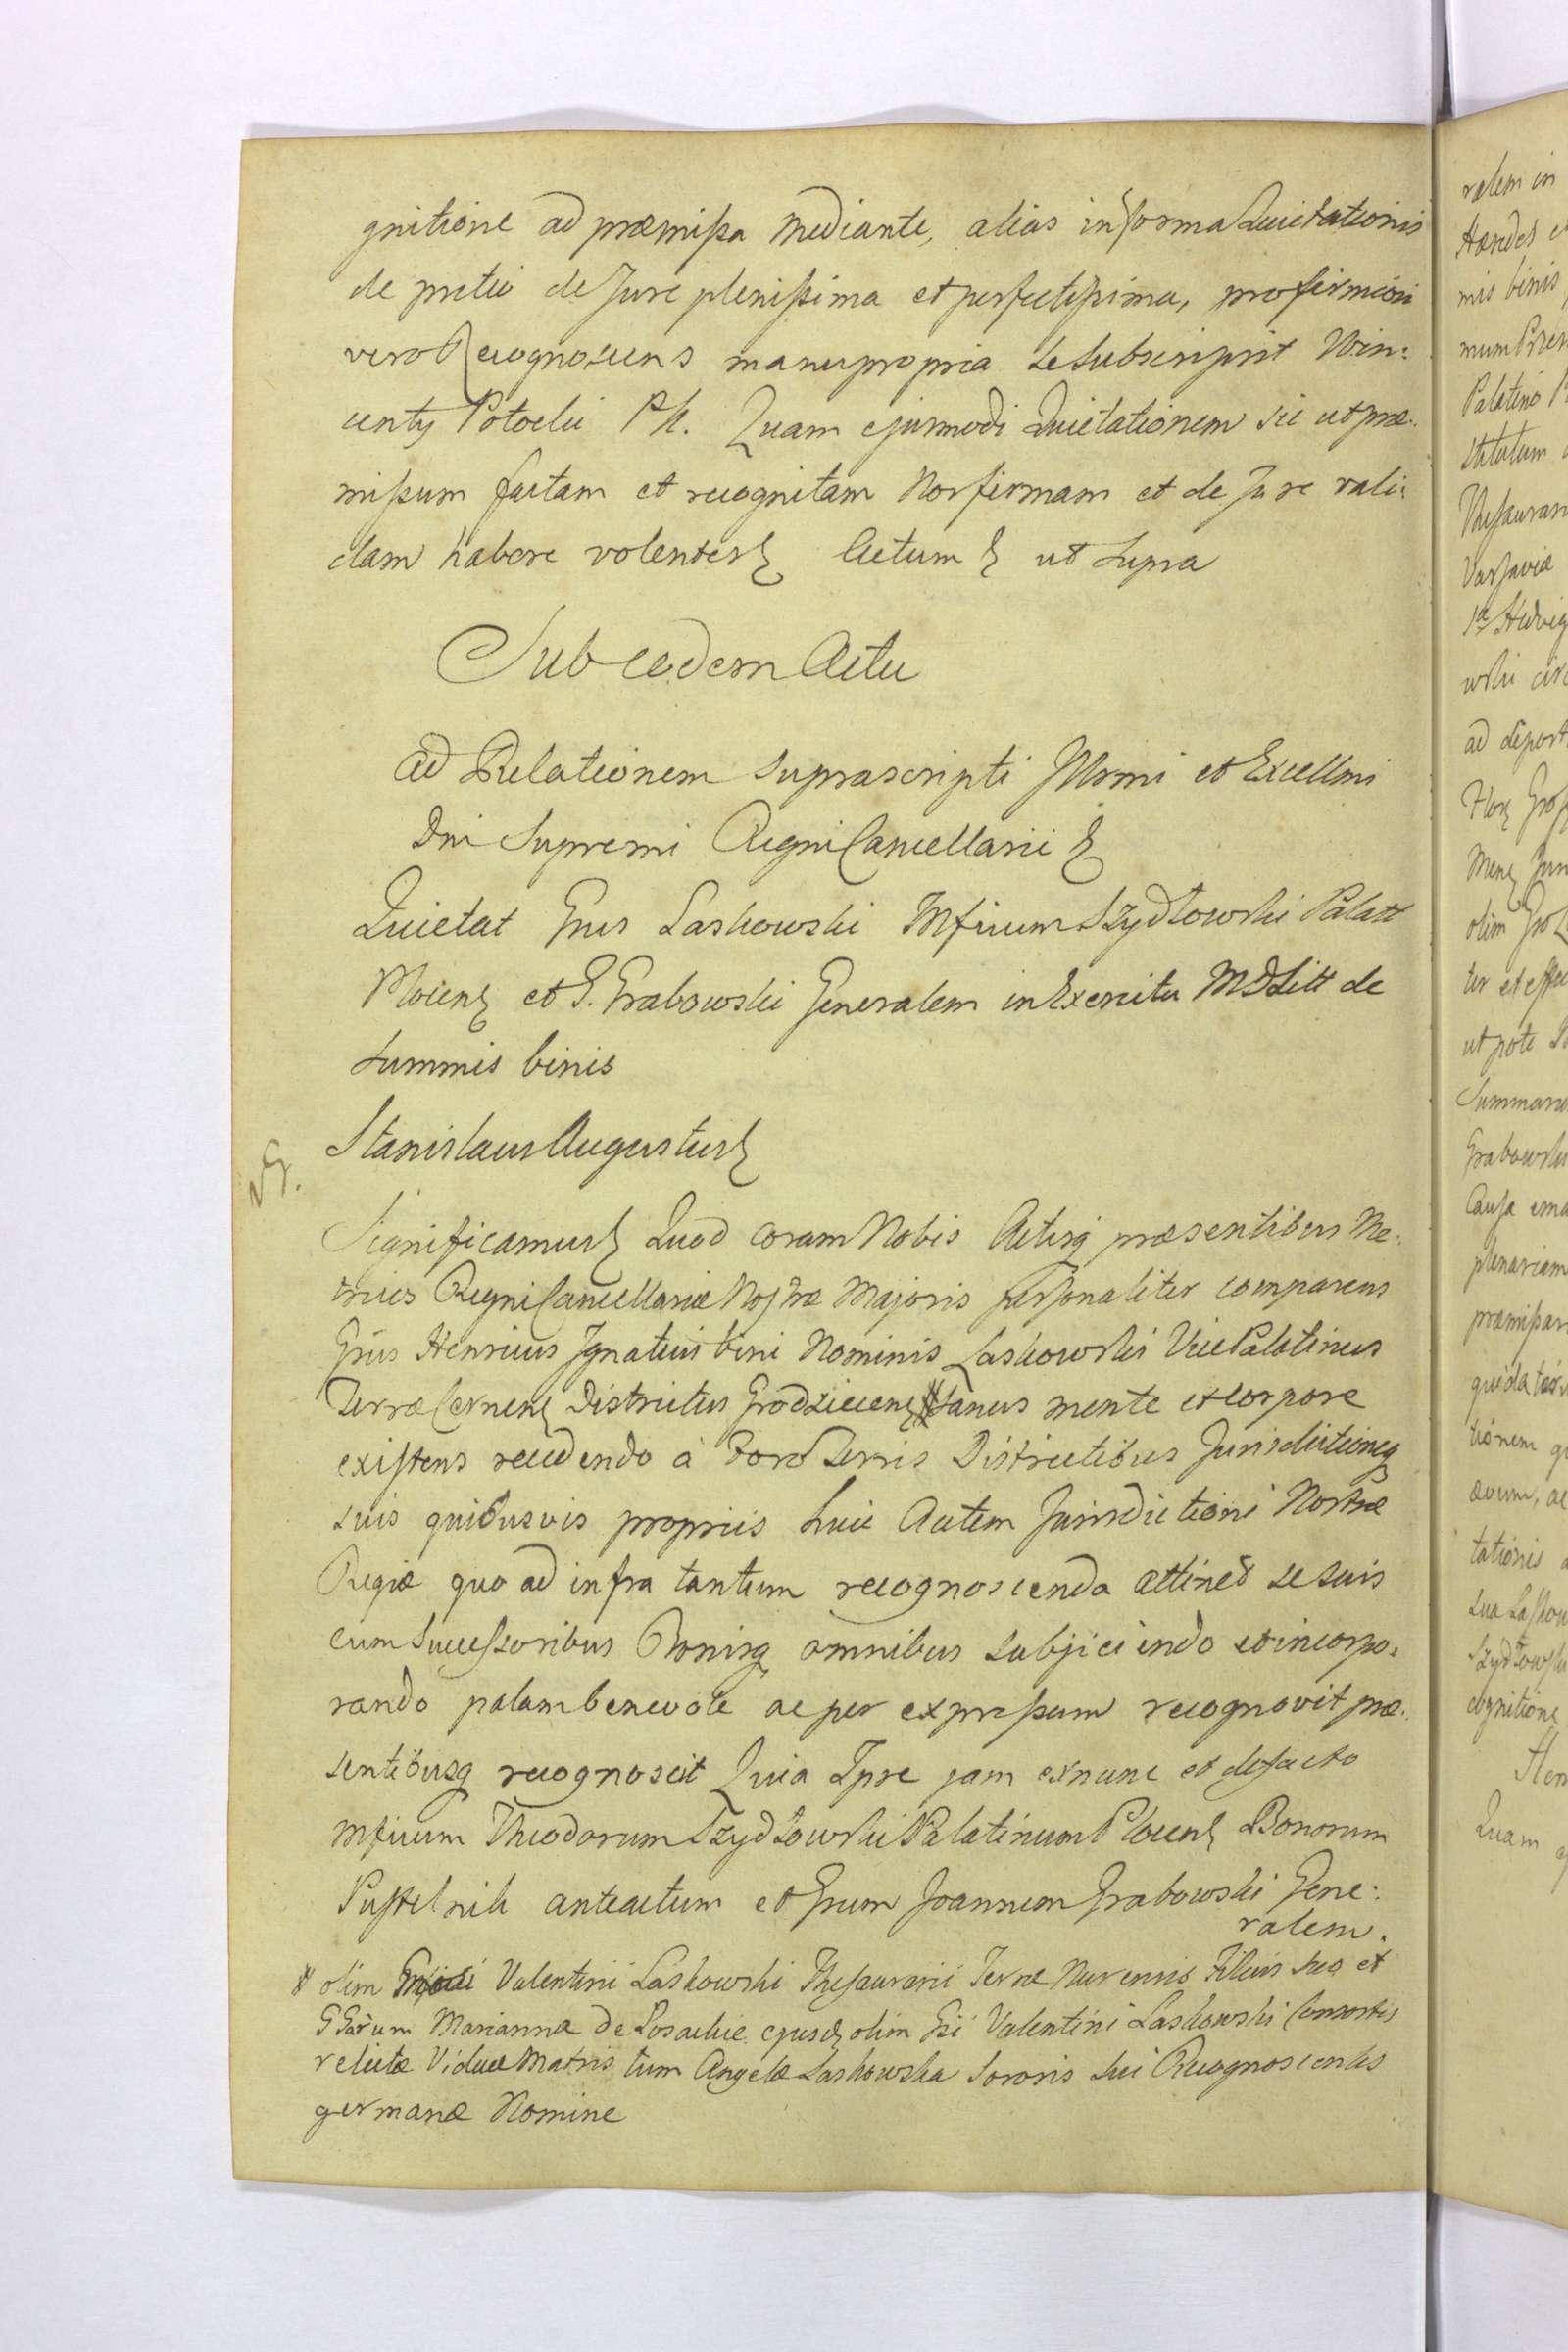 gnitione ad præmißa mediante, alias in forma Quietationis
de pretio de Jure plenißima et perfectißima, pro firmiori
vero Recognoscens manu propria se subscripsit Win:
centy Potocki Pk. Quam ejusmodi Quietationem sic ut præ:
mißum factam et recognitam Nos firmam et de Jure vali:
dam habere volentes Actum ut supra
Sub eodem Actu
Ad Relationem suprascripti Illsmi et Excellmi
Dni Supremi Regni Cancellarii
Quietat Gnus Laskowski Mficum Szydłowski Palatt
Płocens et G. Grabowski Generalem in Exercitu MDLitt de
summis binis
Stanislaus Augustus
Significamus Quod coram Nobis Actisq præsentibus Me:
trices Regni Cancellariæ Nostræ Majoris personaliter comparens
Gnus Henricus Ignatius bini Nominis Laskowski Vice Palatinus
Terræ Cernens Districtus Grodziecens sanus mente et corpore
existens recedendo à Foro Terris Districtibus Jurisdictioneq
suis quibusvis propriis huic Autem Jurisdictioni Nostræ
Regiæ quo ad infra tantum recognoscenda attinet se suis
cum Successoribus Bonisq omnibus subjiciendo et incorpo:
rando palam benevole ac per expressum recognovit præ:
sentibusq recognoscit Quia Ipse jam ex nunc et de facto
Mficum Theodorum Szydłowski Palatinum Płocens Bonorum
Pustelnik anteactum et Gnum Joannem Grabowski Gene:
ralem.
olim Valentini Laskowski Thesaurarii Terræ Nurensis Filius suo et
Marianna de ejusd olim Gsi Valentini Laskowski Consortis
relictæ Viduæ Matris, tum Angelæ Laskowska Sororis sui Recognoscentis
germanæ Nomine
ralem in
mis binis
Palatino
Varsaviæ
ad deport
olim
ut pote
Summarum
Grabowski
Causa
plenariam
tionem
ævum, ac
tationis
Szydłowski
cognitione
Quam